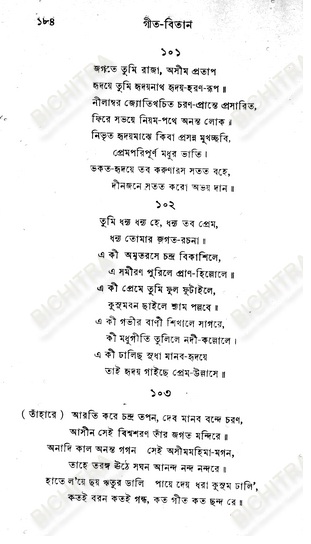 ১৮৪ গীত-বিতান
১০১
জগতে তুমি রাজা, অসীম প্রতাপ
হৃদয়ে তুমি হৃদয়নাথ হৃদয়-হরণ-রূপ॥
নীলাম্বর জ্যোতিখচিত চরণ-প্রান্তে প্রসারিত,
ফিরে সভয়ে নিয়ম-পথে অনন্ত লোক।
নিভৃত হৃদয়মাঝে কিবা প্রসন্ন মুখচ্ছবি,
প্রেমপরিপূর্ণ মধুর ভাতি।
ভকত-হৃদয়ে তব করুণারস সতত বহে,
দীনজনে সতত করো অভয় দান॥
১০২
তুমি ধন্য ধন্য হে, ধন্য তব প্রেম,
ধন্য তোমার জগত-রচনা॥
এ কী অমৃতরসে চন্দ্র বিকাশিলে,
এ সমীরণ পূরিলে প্রাণ-হিল্লোলে॥
এ কী প্রেমে তুমি ফুল ফুটাইলে,
কুসুমবন ছাইলে শ্যাম পল্লবে॥
এ কী গভীর বাণী শিখালে সাগরে,
কী মধুগীতি তুলিলে নদী-কল্লোলে।
এ কী ঢালিছ সুধা মানব-হৃদয়ে
তাই হৃদয় গাইছে প্রেম-উল্লাসে॥
১০৩
(তাঁহারে) আরতি করে চন্দ্র তপন, দেব মানব বন্দে চরণ,
আসীন সেই বিশ্বশরণ তাঁর জগত মন্দিরে॥
অনাদি কাল অনন্ত গগন সেই অসীমমহিমা-মগন,
তাহে তরঙ্গ উঠে সঘন আনন্দ নন্দ নন্দরে॥
হাতে ল'য়ে ছয় ঋতুর ডালি পায়ে দেয় ধরা কুসুম ঢালি',
কতই বরন কতই গন্ধ, কত গীত কত ছন্দ রে॥
BIGHITRA